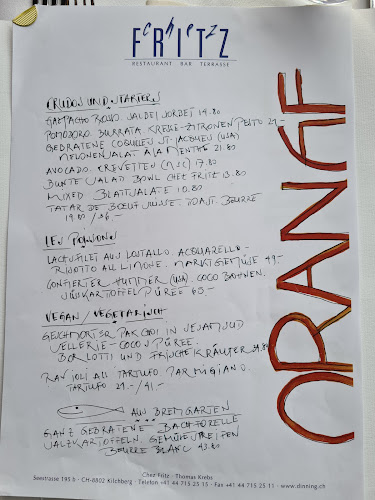 chez
FRITZ
RESTAURANT BAR TERRASSE
CRUDOS UND STARTERS
GAZPACHO ROSSO. BASILIC SORBET 14.80
POMODORO. BURRATA. KRESSE-ZITRONENPESTO 21.-
GEBRATENE COQUILLES ST-JACQUES (USA)
MELONENSALAT À LA MENTHE 21.80
AVOCADO. KREVETTEN (MSC) 17.80
BUNTE SALAD BOWL CHEZ FRITZ 13.80
MIXED BLATTSALATE 10.80
TATAR DE BOEUF SUISSE. TOAST. BEURRE
/ 36.-
LES POISSONS
LACHSFILET AUS LOSTALLO ACQUARELLO-
RISOTTO AL LIMONE. MARKTGEMÜSE 49.-
CONFIERTER HUMMER (USA). COCO BOHNEN.
SÜSSKARTOFFELPÜREE 65.-
VEGAN / VEGETARISCH
GESCHMORTER PAK CHOI IN SESAMSUD
SELLERIE-COCOSPÜREE.
BORLOTTI UND FRISCHE KRÄUTER
RAVIOLI AL TARTUFO PARMIGIANO.
TARTUFO 29.-/41.-
AUS BREMGARTEN
GANZ GEBRATENE BACHFORELLE
SALZKARTOFFELN. GEMÜSESTREIFEN
BEURRE BLANC 43.80
ORANGE
Chez Fritz · Thomas Krebs
Seestrasse 195 b · CH-8802 Kilchberg · Telefon +41 44 715 25 15 · Fax +41 44 715 25 11 · www.dinning.ch